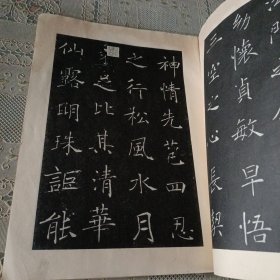 幼懷貞敏早悟
三空之心長契
神情先苞四忍
之行松風水月
未足比其清華
仙露明珠詎能